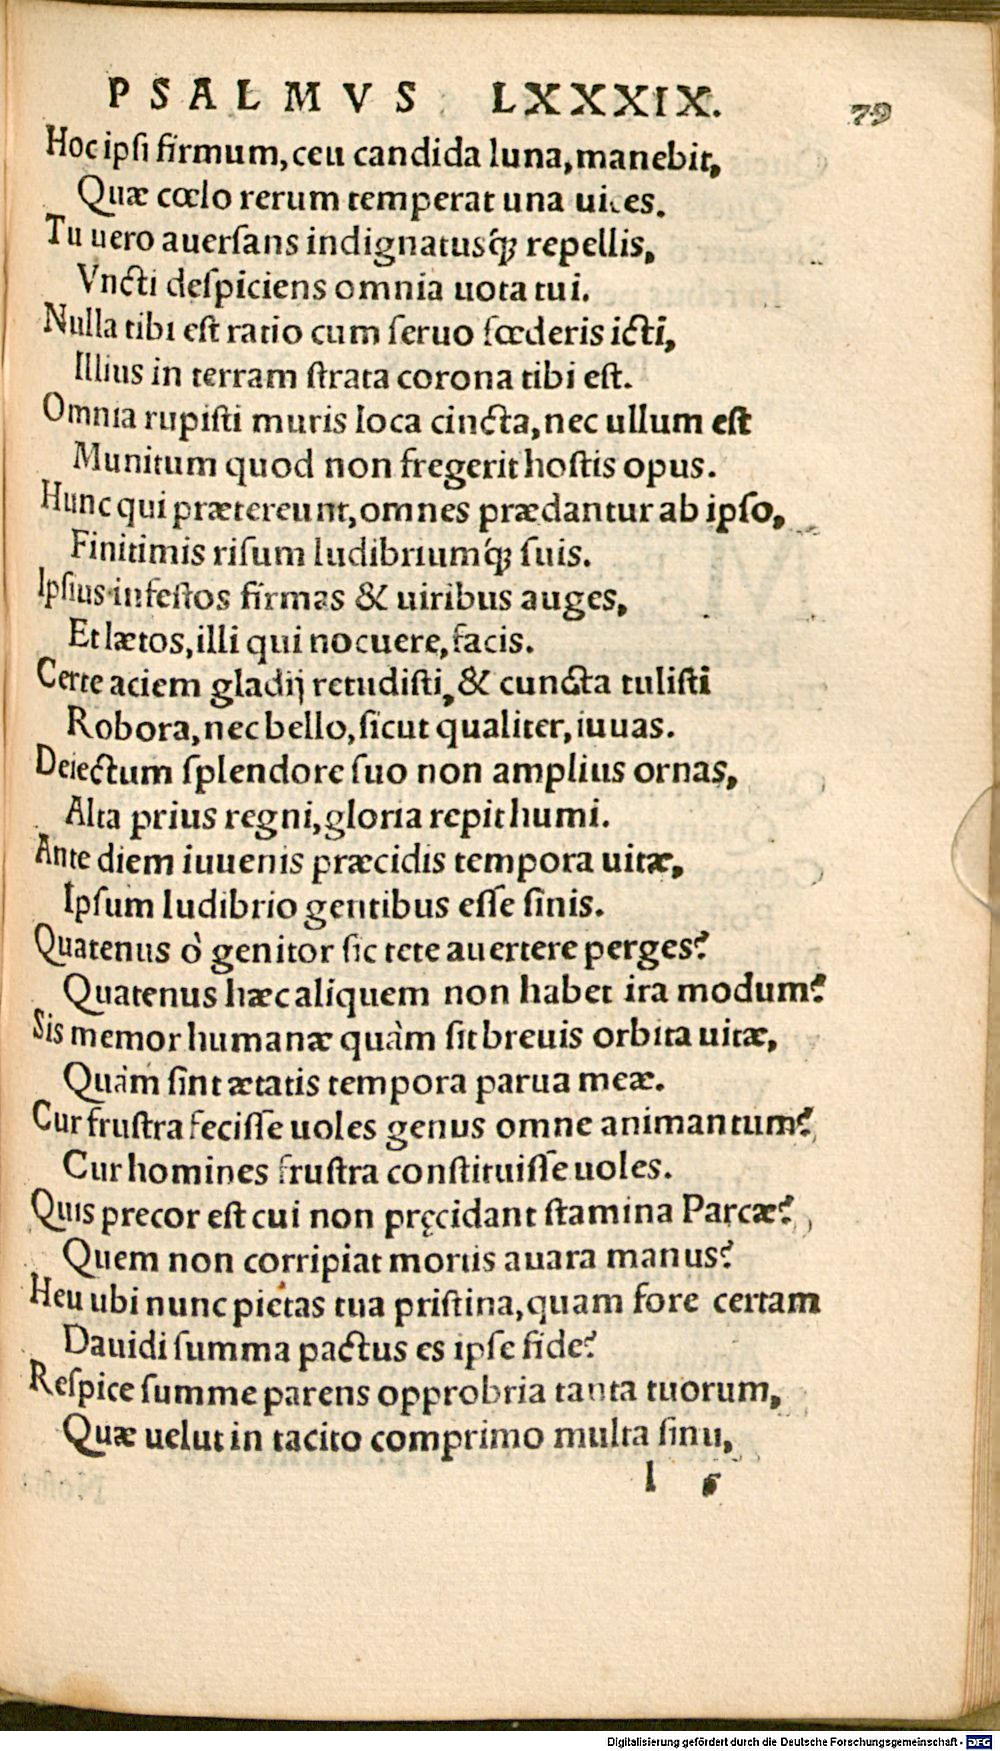 PSALMVS LXXXIX. 79
Hoc ipſi firmum, ceu candida luna, manebit,
Quæ cœlo rerum temperat una uices.
Tu uero auerſans indignatusq́ꝫ repellis,
Vncti deſpiciens omnia uota tui.
Nulla tibi eſt ratio cum ſeruo fœderis icti,
Illius in terram ſtrata corona tibi eſt.
Omnia rupiſti muris loca cincta, nec ullum eſt
Munitum quod non fregerit hoſtis opus.
Hunc qui prætereunt, omnes prædantur ab ipſo,
Finitimis riſum ludibriumq́ꝫ ſuis.
Ipſius infeſtos firmas & uiribus auges,
Et lætos, illi qui nocuere, facis.
Certe aciem gladij retudiſti, & cuncta tuliſti
Robora, nec bello, ſicut qualiter, iuuas.
Deiectum ſplendore ſuo non amplius ornas,
Alta prius regni, gloria repit humi.
Ante diem iuuenis præcidis tempora uitæ,
Ipſum ludibrio gentibus eſſe ſinis.
Quatenus ò genitor ſic tete auertere perges?
Quatenus hæc aliquem non habet ira modum?
Sis memor humanæ quàm ſit breuis orbita uitæ,
Quàm ſint ætatis tempora parua meæ.
Cur fruſtra feciſſe uoles genus omne animantum?
Cur homines fruſtra conſtituiſſe uoles.
Quis precor eſt cui non pręcidant ſtamina Parcæ?
Quem non corripiat mortis auara manus?
Heu ubi nunc pietas tua priſtina, quam fore certam
Dauidi ſumma pactus es ipſe fide?
Reſpice ſumme parens opprobria tanta tuorum,
Quæ uelut in tacito comprimo multa ſinu,
l 5
Digitalisierung gefördert durch die Deutsche Forschungsgemeinschaft - DFG